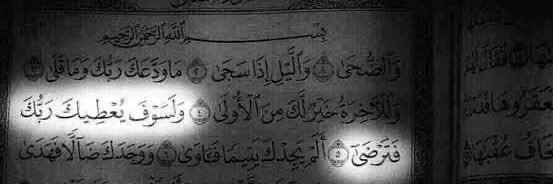 بِسْمِ ٱللَّهِ ٱلرَّحْمَٰنِ ٱلرَّحِيمِ
وَٱلضُّحَىٰ ١ وَٱلَّيْلِ إِذَا سَجَىٰ ٢ مَا وَدَّعَكَ رَبُّكَ وَمَا قَلَىٰ ٣
وَلَلْآخِرَةُ خَيْرٌ لَّكَ مِنَ ٱلْأُولَىٰ ٤ وَلَسَوْفَ يُعْطِيكَ رَبُّكَ
فَتَرْضَىٰ ٥ أَلَمْ يَجِدْكَ يَتِيمًا فَـَٔاوَىٰ ٦ وَوَجَدَكَ ضَآلًّا فَهَدَىٰ